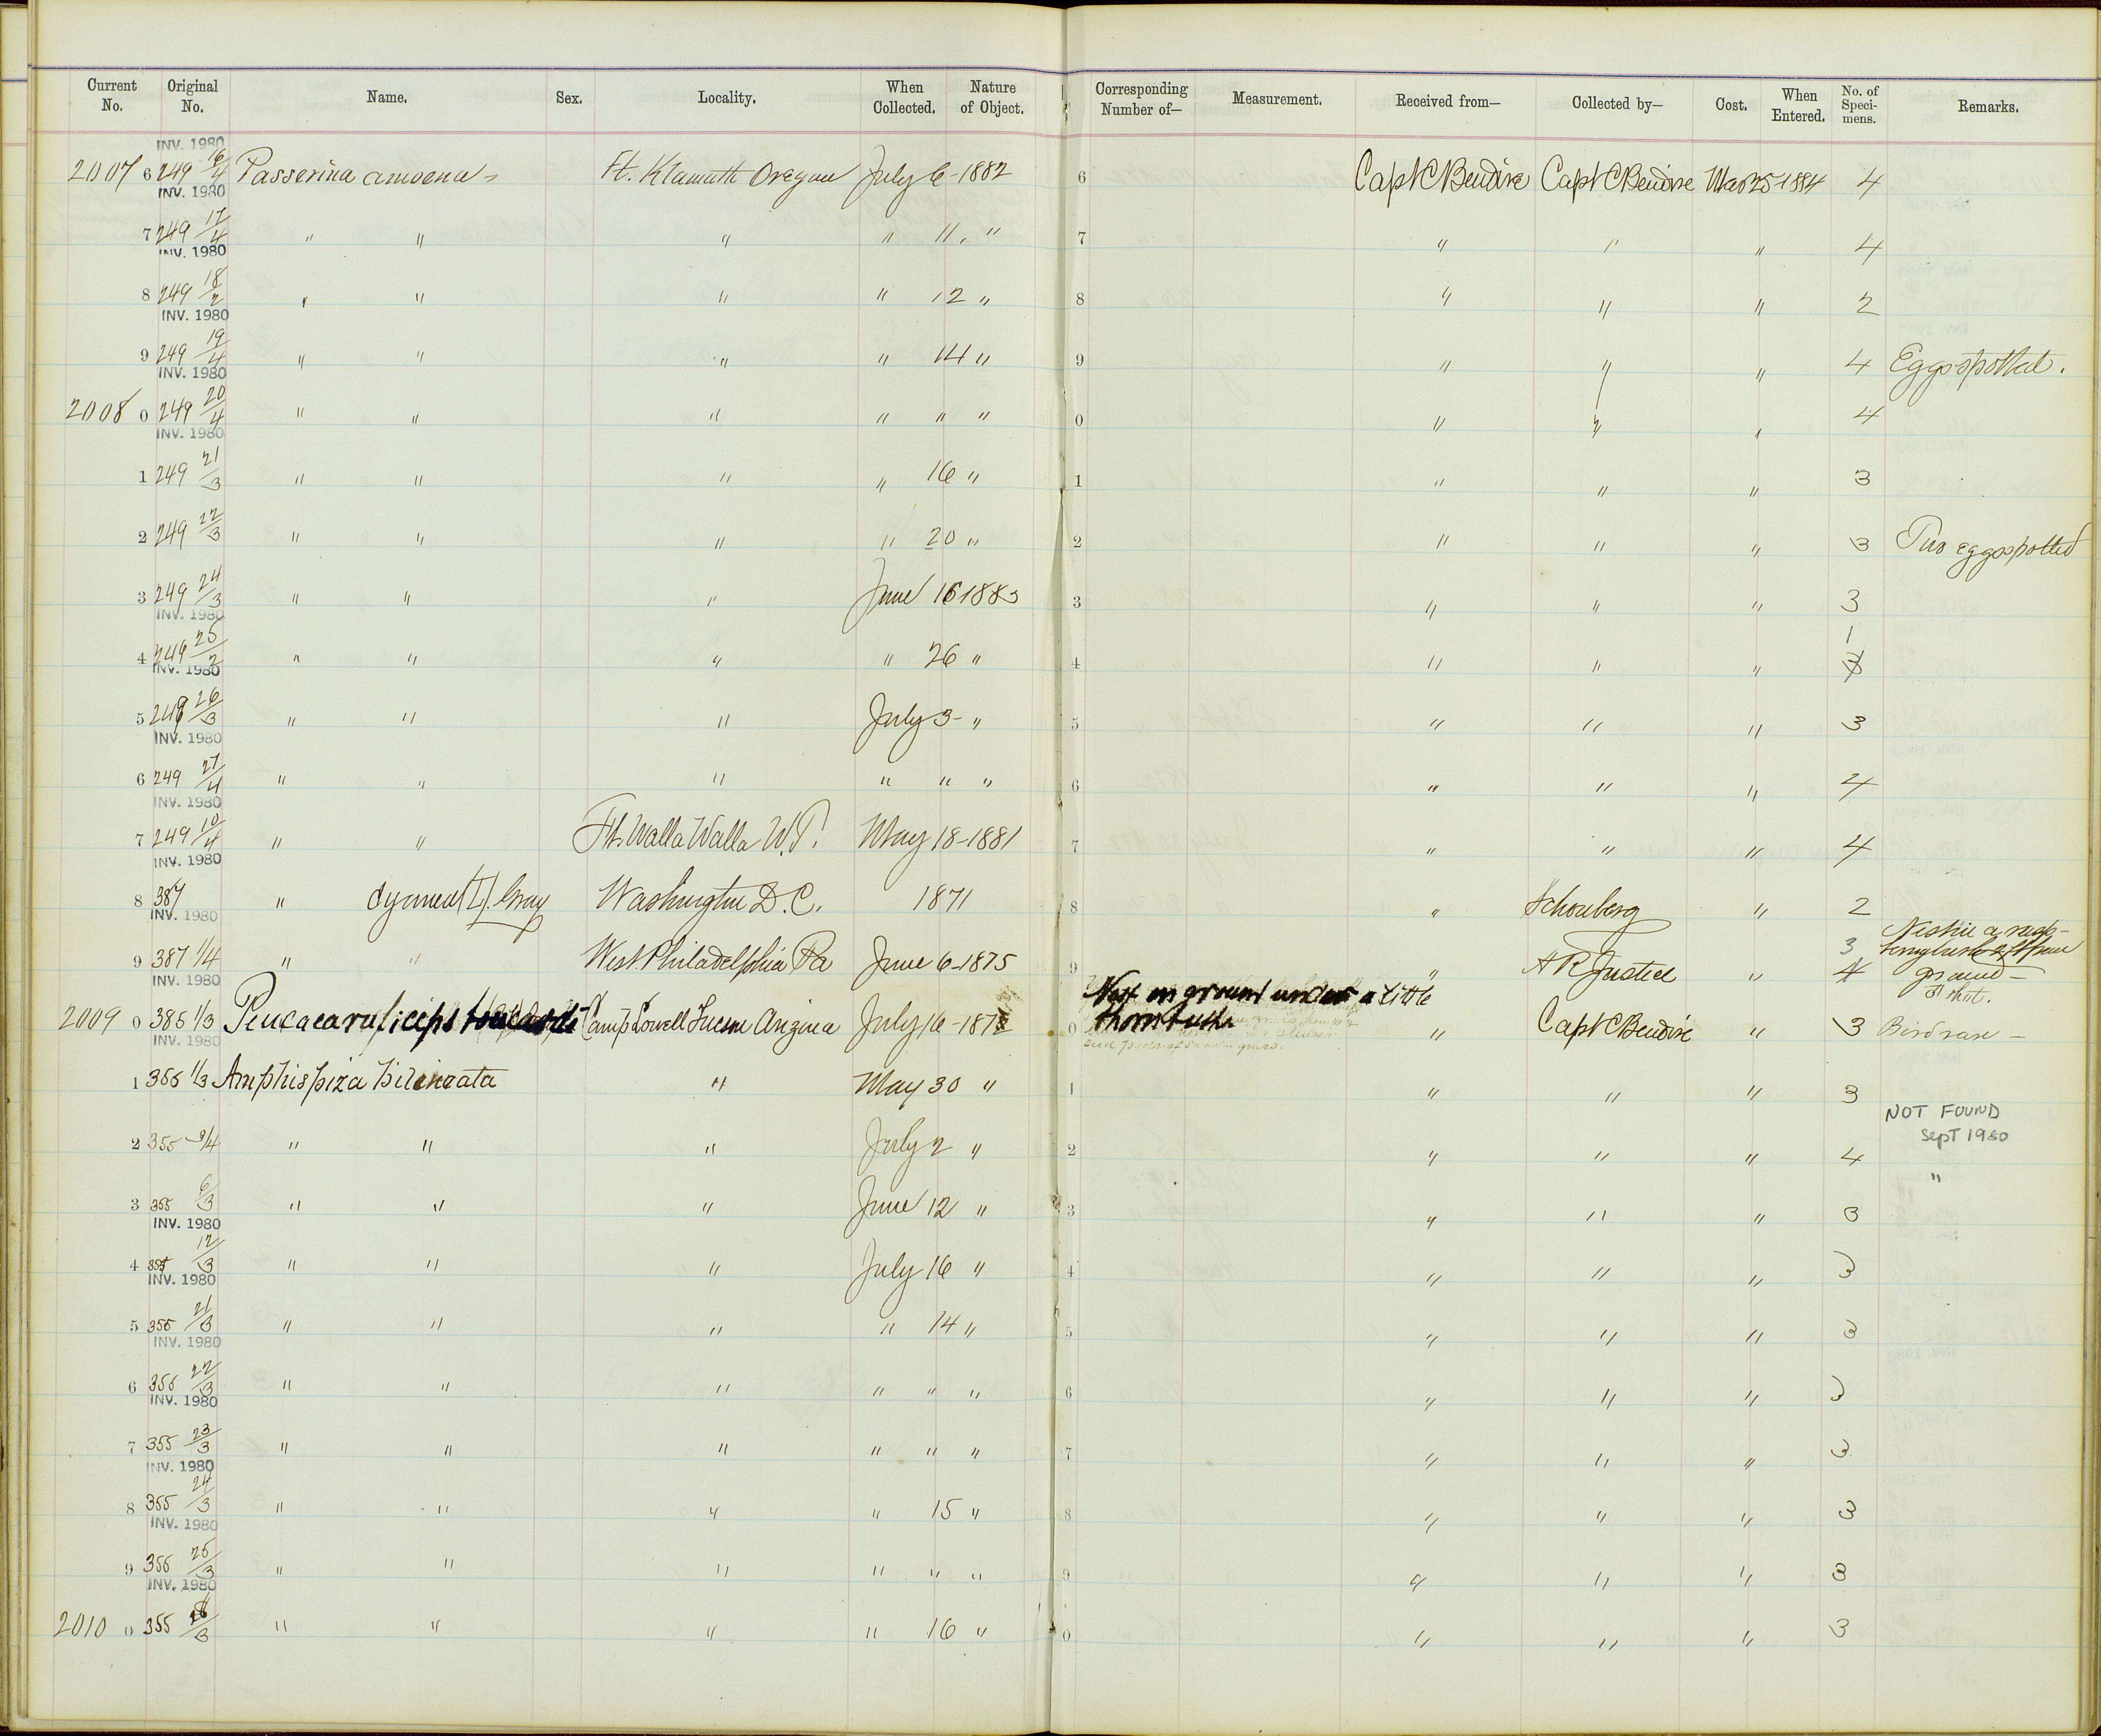 Current No. Original No. Name. Sex. Locality. When Collected. Nature of Object. Corresponding Number of— Measurement. Received from— Collected by— Cost. When Entered. No. of Specimens. Remarks.
INV. 1980
2007 6 249 16/4 Passerina amoena Ft. Klamath Oregon July 6-1882 6 Capt C Bendire Capt C Bendire Mar 25-1884 4
INV. 1980
7 249 17/4 " " " " 11, " 7 " " " 4
INV. 1980
8 249 18/2 " " " " 12 " 8 " " " 2
INV. 1980
9 249 19/4 " " " " 14 " 9 " " " 4 Eggs spotted.
INV. 1980
2008 0 249 20/4 " " " " " " 0 " " " 4
INV. 1980
1 249 21/3 " " " " 16 " 1 " " " 3
2 249 22/3 " " " " 20 " 2 " " " 3 Two eggs spotted
3 249 24/3 " " " June 16 1883 3 " " " 3
INV. 1980
4 249 25/2 " " " " 26 " 4 " " " 1
INV. 1980
5 249 26/3 " " " July 3- " 5 " " " 3
INV. 1980
6 249 27/4 " " " " " " 6 " " " 4
INV. 1980
7 249 10/4 " " Ft. Walla Walla W.T. May 18-1881 7 " " " 4
INV. 1980
8 387 " cyanea (L). Gray Washington D.C. 1871 8 " Schonberg " 2
INV. 1980
9 387 1/4 " " West Philadelphia Pa June 6-1875 9 " A R Justice " 3 4 Nest in a rasp-
berry bush 2 ft from
ground—
INV. 1980
Nest on ground under a little
thorn bush
2009 0 385 1/3 Peucaea ruficeps Camp Lowell Tucson Arizona July 16-1872 0 " Capt C Bendire " 3 Bird rare — shot.
INV. 1980
1 355 1/3 Amphispiza bilineata " May 30 " 1 " " " 3
NOT FOUND
Sept 1980
2 355 3/4 " " " July 2 " 2 " " " 4 "
3 355 6/3 " " " June 12 " 3 " " " 3
INV. 1980
4 355 12/3 " " " July 16 " 4 " " " 3
INV. 1980
5 355 21/3 " " " " 14 " 5 " " " 3
INV. 1980
6 355 22/3 " " " " " " 6 " " " 3
INV. 1980
7 355 23/3 " " " " " " 7 " " " 3
INV. 1980
8 355 24/3 " " " " 15 " 8 " " " 3
INV. 1980
9 355 25/3 " " " " " " 9 " " " 3
INV. 1980
2010 0 355 26/3 " " " " 16 " 0 " " " 3